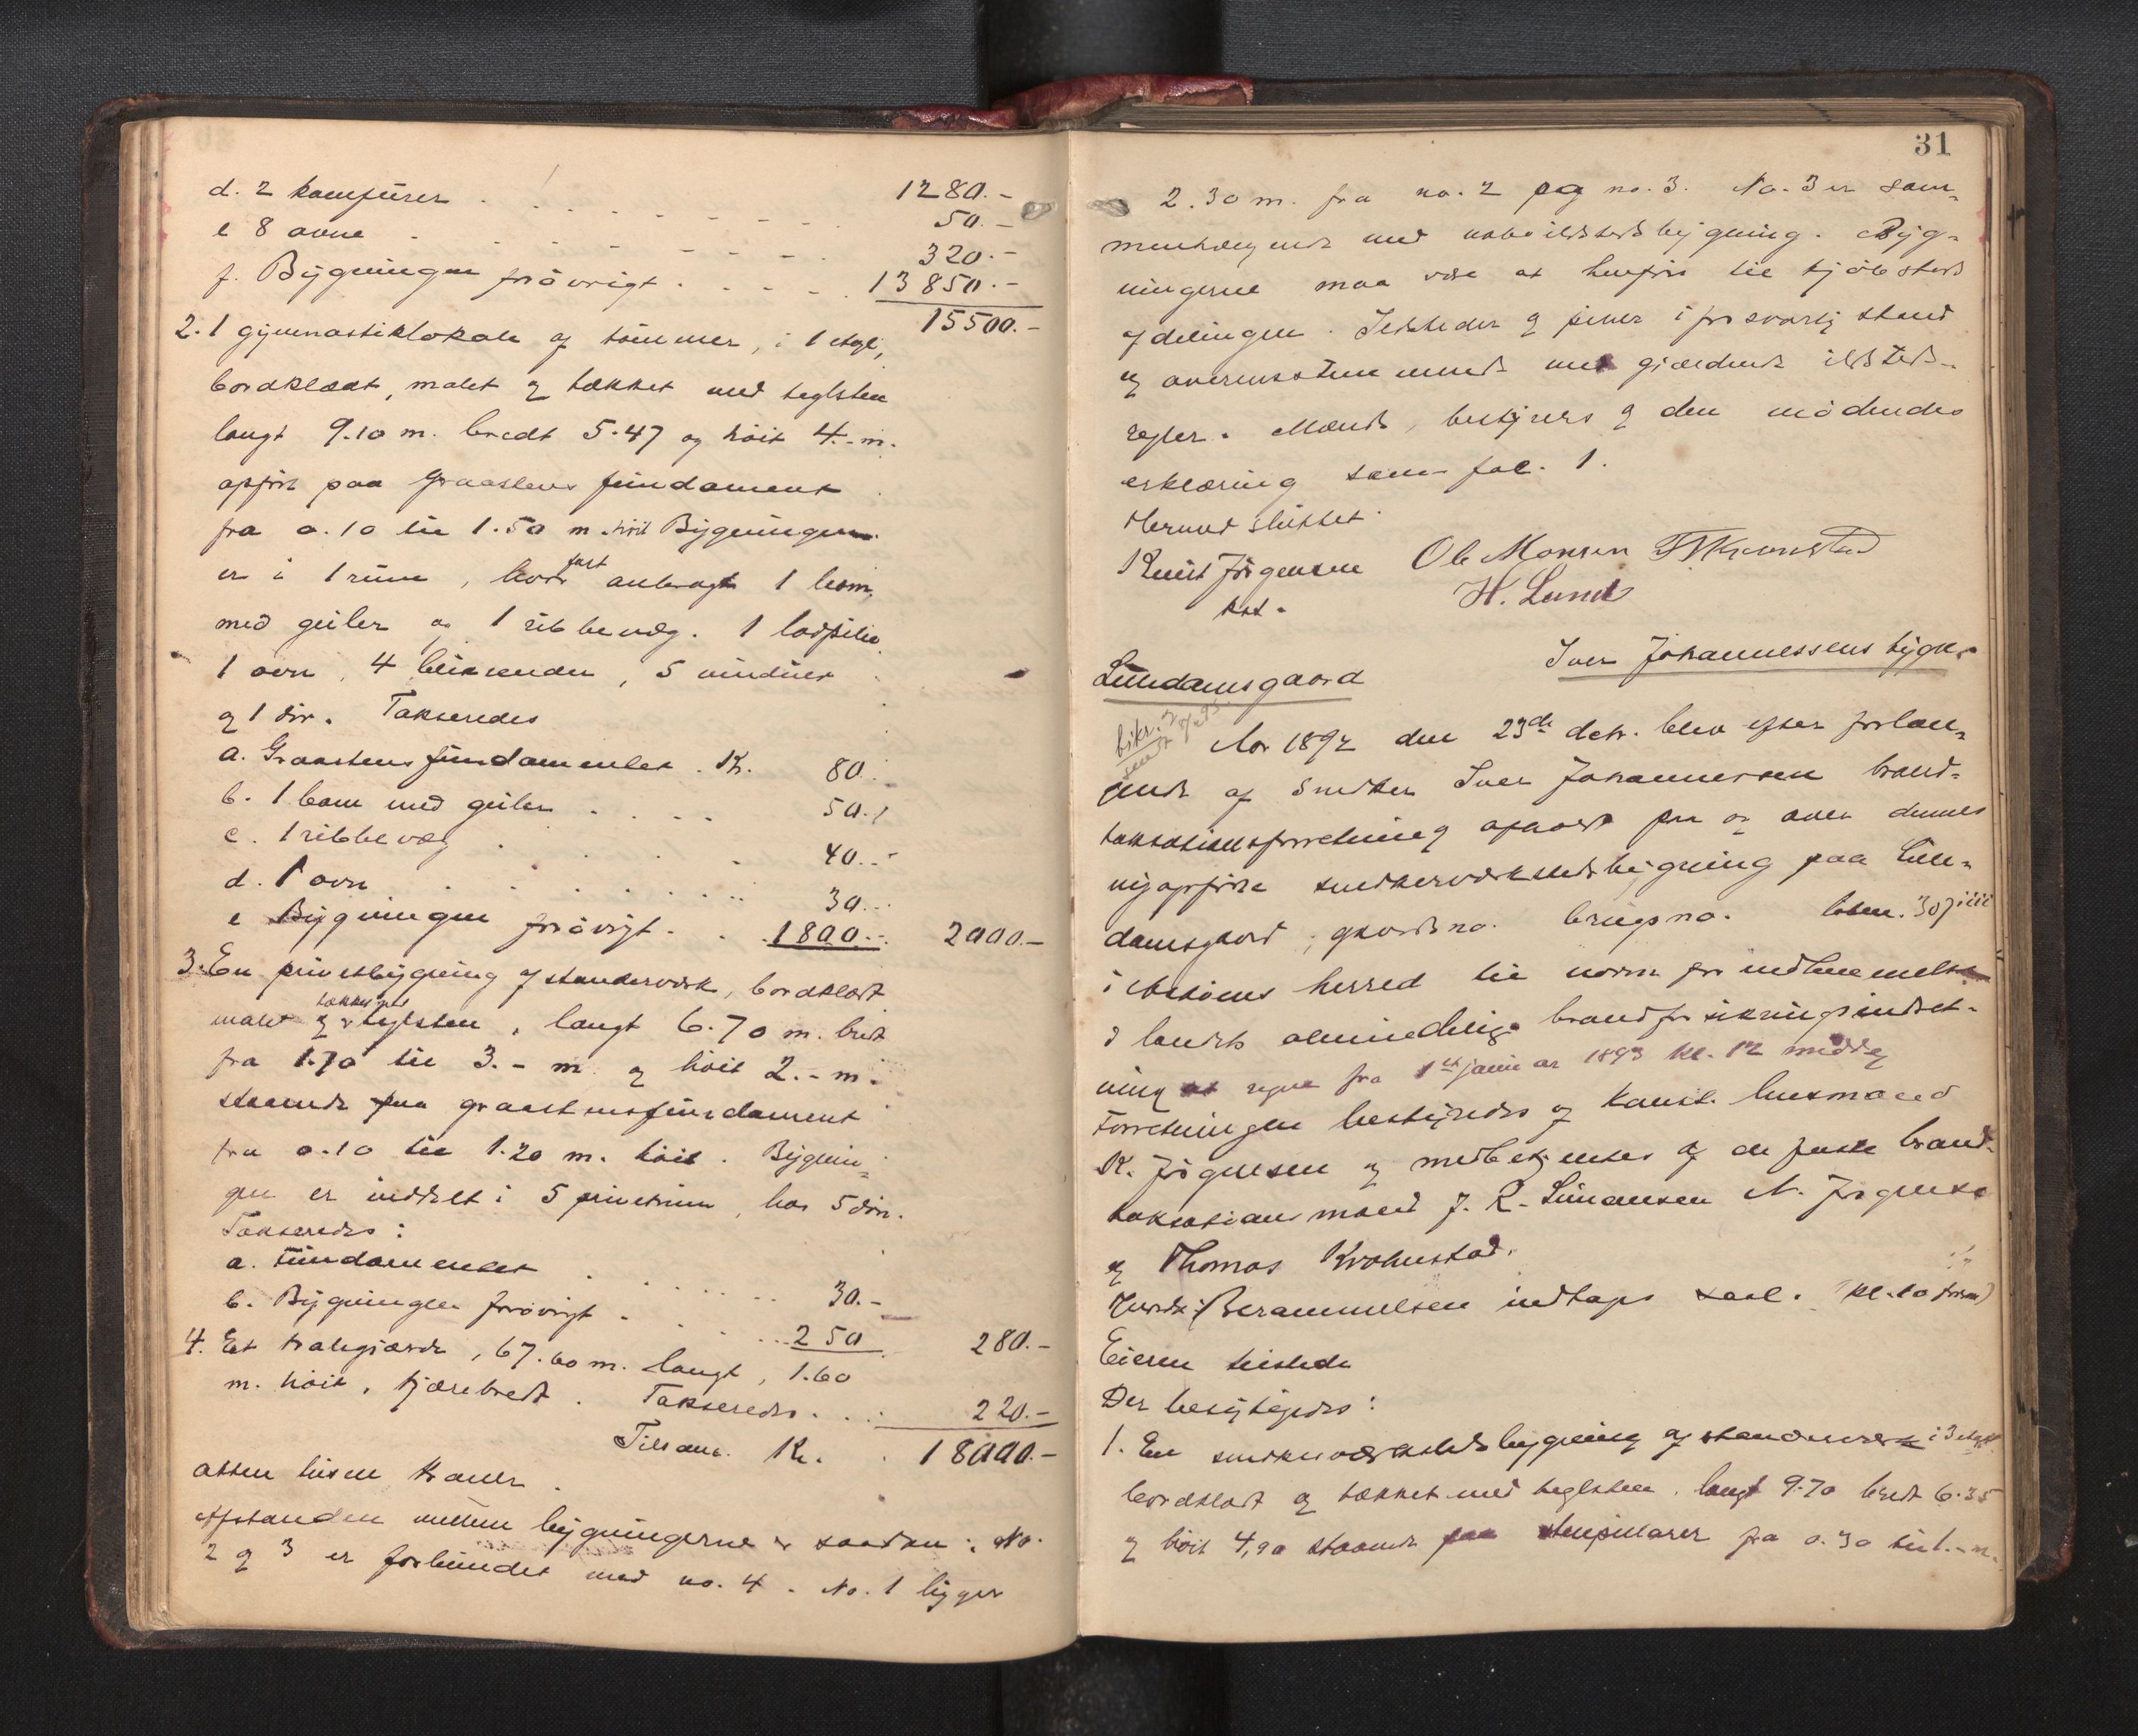 d. 2 komfurer . . . . . 1280.-
e 8 ovne . . . . . 50.-
320.-
f. Bygningen forøvrigt . . . . 13850.-
15500.-
2. 1 gymnastiklokale af tømmer, i 1 etage,
bordklædt, malet og tækket med teglsten
langt 9.10 m. bredt 5.47 og høit 4.- m.
opført paa Graastens fundament
fra 0.10 til 1.50 m. høit Bygningen
er i 1 rum, hvori fast anbragt 1 bom
med geiler og 1 ribbevæg. 1
1 ovn, 4 , 5 vinduer
og 1 dør. Takseredes
a. Graastensfundamentet . Kr. 80.-
b. 1 bom med geiler . . . . 50.-
c. 1 ribbevæg . . . 40.-
d. 1 ovn . . . . . 30.-
e Bygningen forøvrigt . . 1800.- 2000.-
3. En privetbygning af standerværk, bordklædt
malet og tækket med teglsten, langt 6.70 m. bredt
fra 1.70 til 3.- m. og høit 2.- m.
staaende paa graastensfundament
fra 0.10 til 1.20 m. høit. Bygnin-
gen er inddelt i 5 privetrum, har 5 dør.
Takseredes:
a. Fundamentet . . . . . 30.-
b. Bygningen forøvrigt . . . . 250 280.-
4. Et gjærde, 67.60 m. langt, 1.60
m. høit, tjærebredt. Takseredes . . . 220.-
Tilsam. Kr. . 18000.-
Atten tusen Kroner.
Afstanden mellem bygningerne er saadan: No.
2 og 3 er forbundet med no. 4. No. 1 ligger
31
2.30 m. fra no. 2 og no. 3. No. 3 er sam-
menhængende med nabo ildstedsbygning. Byg-
ningerne maa være at henføre til kjøbsteds
afdelingen. Ildsteder og piber i forsvarlig stand
og overensstemmende med gjældende ildsteds-
regler. Mænds, bestyrers og den mødendes
erklæring som fol. 1.
Hermed sluttet.
Knut Jørgensen Ole Monsen Th Kronstad
kst. H. Lund
Iver Johannessens bygn.
Lundamsgaard
Aar 1892 den 23de detr. blev efter forlan-
gende af Snedker Iver Johannessen brand-
taksationsforretning afholdt paa og over dennes
nyopførte snedkerværkstedsbygning paa Lun-
damsgaard, gaardsno. brugsno. løbn. 307
i herred til norm for indlemmelse
i landets almindelige brandforsikringsindret-
ning at regne fra 1ste januar 1893 kl. 12 middag
Forretningen bestyredes af konst. lensmand
K. Jørgensen og medbetjentes af de faste brand-
taksationsmænd J. R. Simonsen N. Jørgensen
og Thomas Krohnstad.
Berammelsen indtages saal. (kl. 10 form)
Eieren tilstede
Der besigtigedes:
1. En snedkerværkstedsbygning af standerværk i 3 etage
bordklædt og tækket med teglsten, langt 9.70 bredt 6.35
og høit 4,90 staaende paa stenpilarer fra 0.30 til 1.- m.